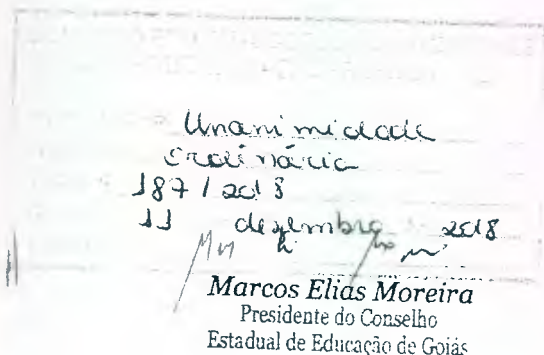 Unanimidade
Ordinária
187 / 2018
11 dezembro 2018
Marcos Elias Moreira
Presidente do Conselho
Estadual de Educação de Goiás